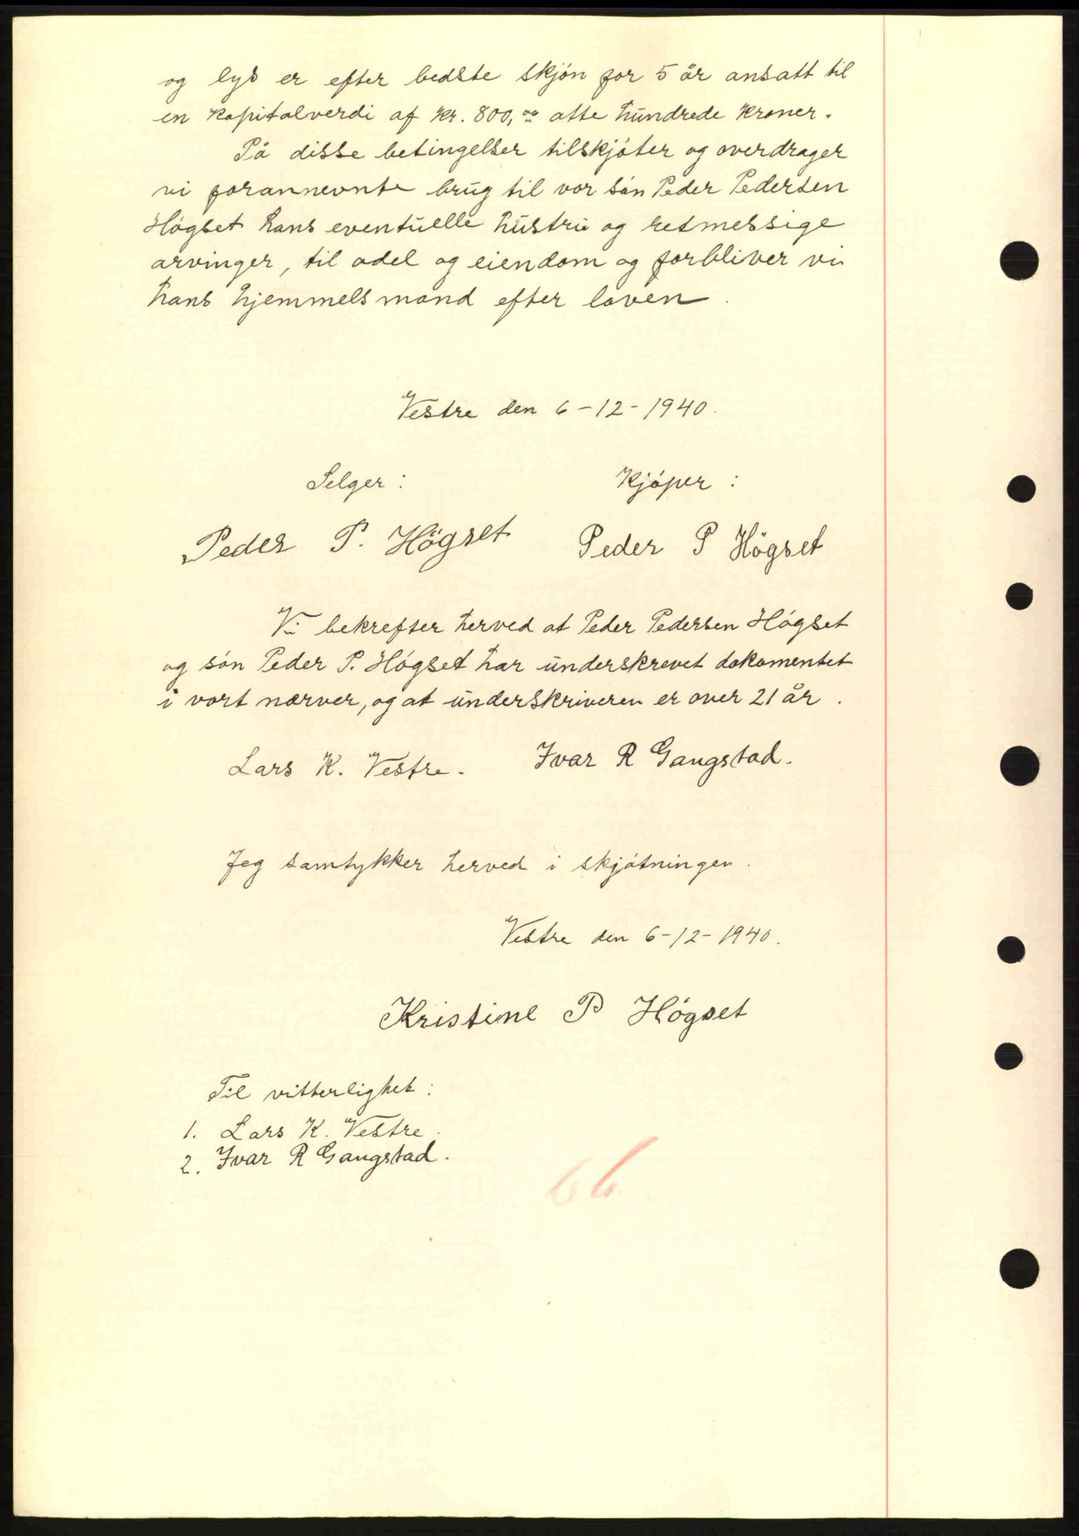 og lys er efter bedste skjøn for 5 år ansatt til
en kapitalverdi af kr. 800,00 otte hundrede kroner.
På disse betingelser tilskjøter og overdrager
vi forannevnte brug til vor søn Peder Pedersen
Høgset hans eventuelle hustru og retmessige
arvinger, til odel og eiendom og forbliver vi
hans hjemmelsmand efter loven.
Vestre den 6-12-1940.
Selger: Kjøper:
Peder P. Högset Peder P Högset
Vi bekrefter herved at Peder Pedersen Høgset
og søn Peder P. Høgset har underskrevet dokomentet
i vort nærver, og at underskriveren er over 21 år.
Lars K. Vestre. Ivar R Gangstad.
Jeg samtykker herved i skjøtningen.
Vestre den 6-12-1940.
Kristine P Høgset
Til vitterlighet:
1. Lars K. Vestre.
2. Ivar R Gangstad.
66